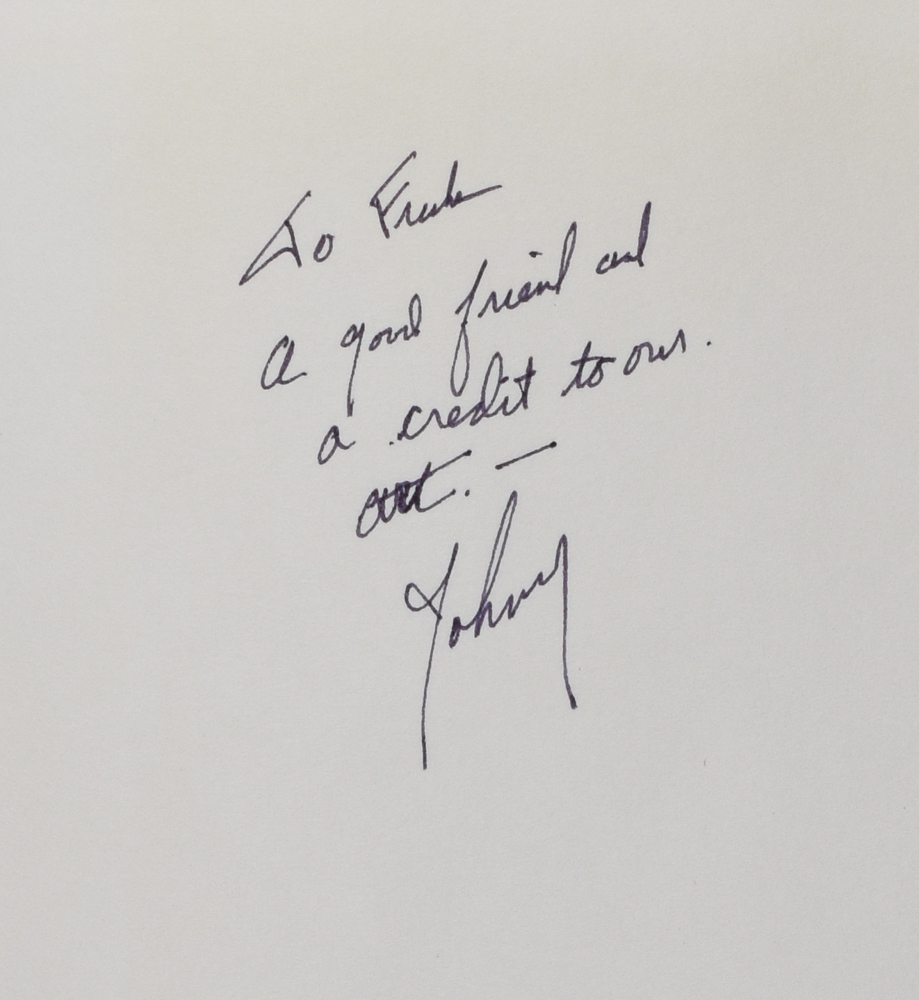 To Frank
a good friend and
a credit to our.
art. —
Johnny